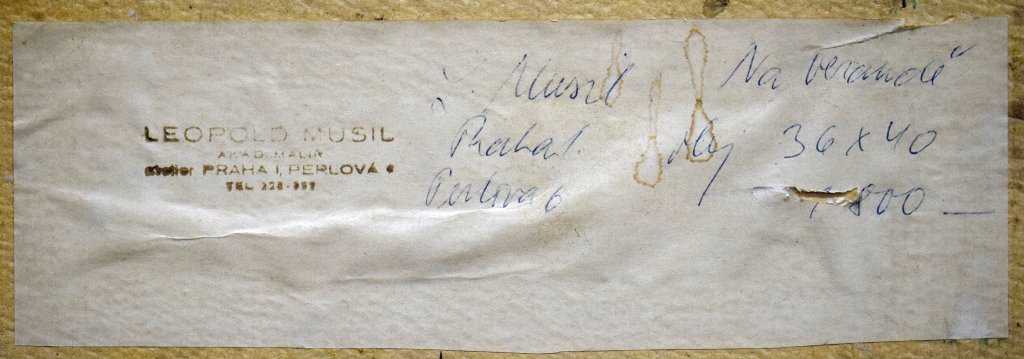 LEOPOLD MUSIL
AKAD. MALÍŘ
atelier PRAHA I, PERLOVÁ 6
TEL
Musil
Praha 1.
Perlova 6
Na verandě
olej 36 x 40
800 —